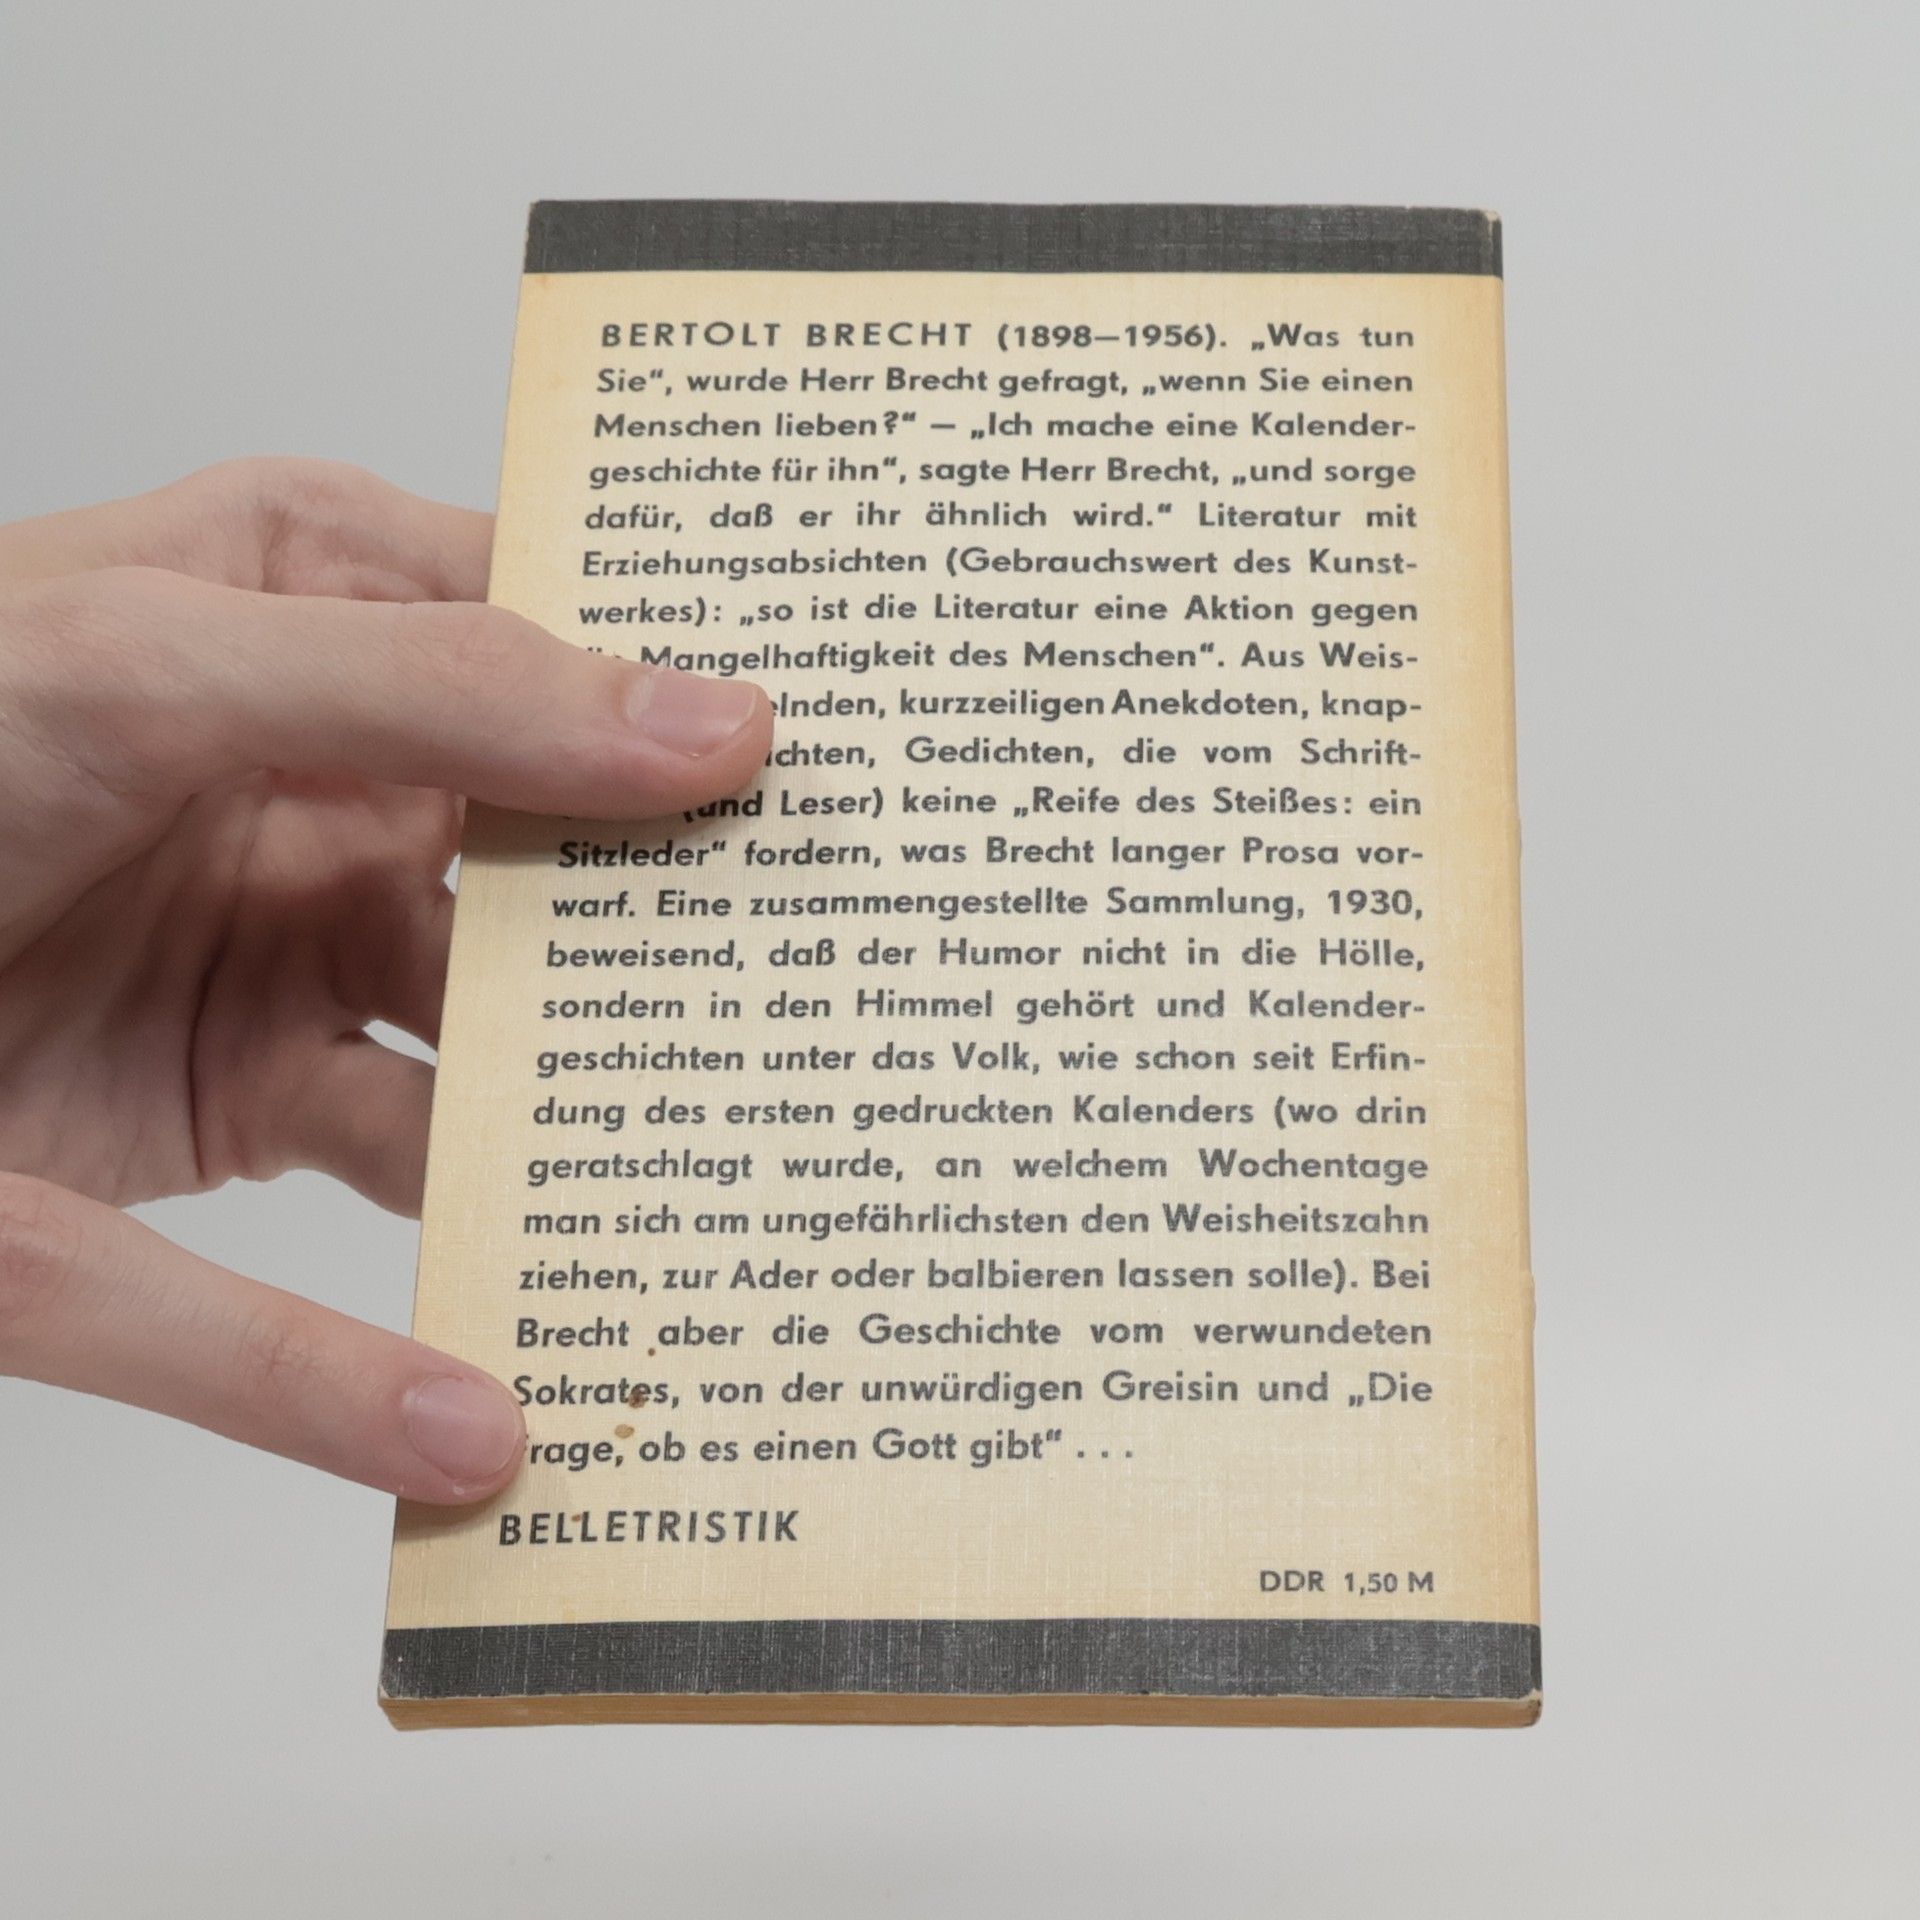 BERTOLT BRECHT (1898–1956). „Was tun
Sie“, wurde Herr Brecht gefragt, „wenn Sie einen
Menschen lieben?“ — „Ich mache eine Kalender-
geschichte für ihn“, sagte Herr Brecht, „und sorge
dafür, daß er ihr ähnlich wird.“ Literatur mit
Erziehungsabsichten (Gebrauchswert des Kunst-
werkes): „so ist die Literatur eine Aktion gegen
Mangelhaftigkeit des Menschen“. Aus Weis-
kurzzeiligen Anekdoten, knap-
Gedichten, die vom Schrift-
(und Leser) keine „Reife des Steißes: ein
Sitzleder“ fordern, was Brecht langer Prosa vor-
warf. Eine zusammengestellte Sammlung, 1930,
beweisend, daß der Humor nicht in die Hölle,
sondern in den Himmel gehört und Kalender-
geschichten unter das Volk, wie schon seit Erfin-
dung des ersten gedruckten Kalenders (wo drin
geratschlagt wurde, an welchem Wochentage
man sich am ungefährlichsten den Weisheitszahn
ziehen, zur Ader oder balbieren lassen solle). Bei
Brecht aber die Geschichte vom verwundeten
Sokrates, von der unwürdigen Greisin und „Die
Frage, ob es einen Gott gibt“ . . .
BELLETRISTIK
DDR 1,50 M